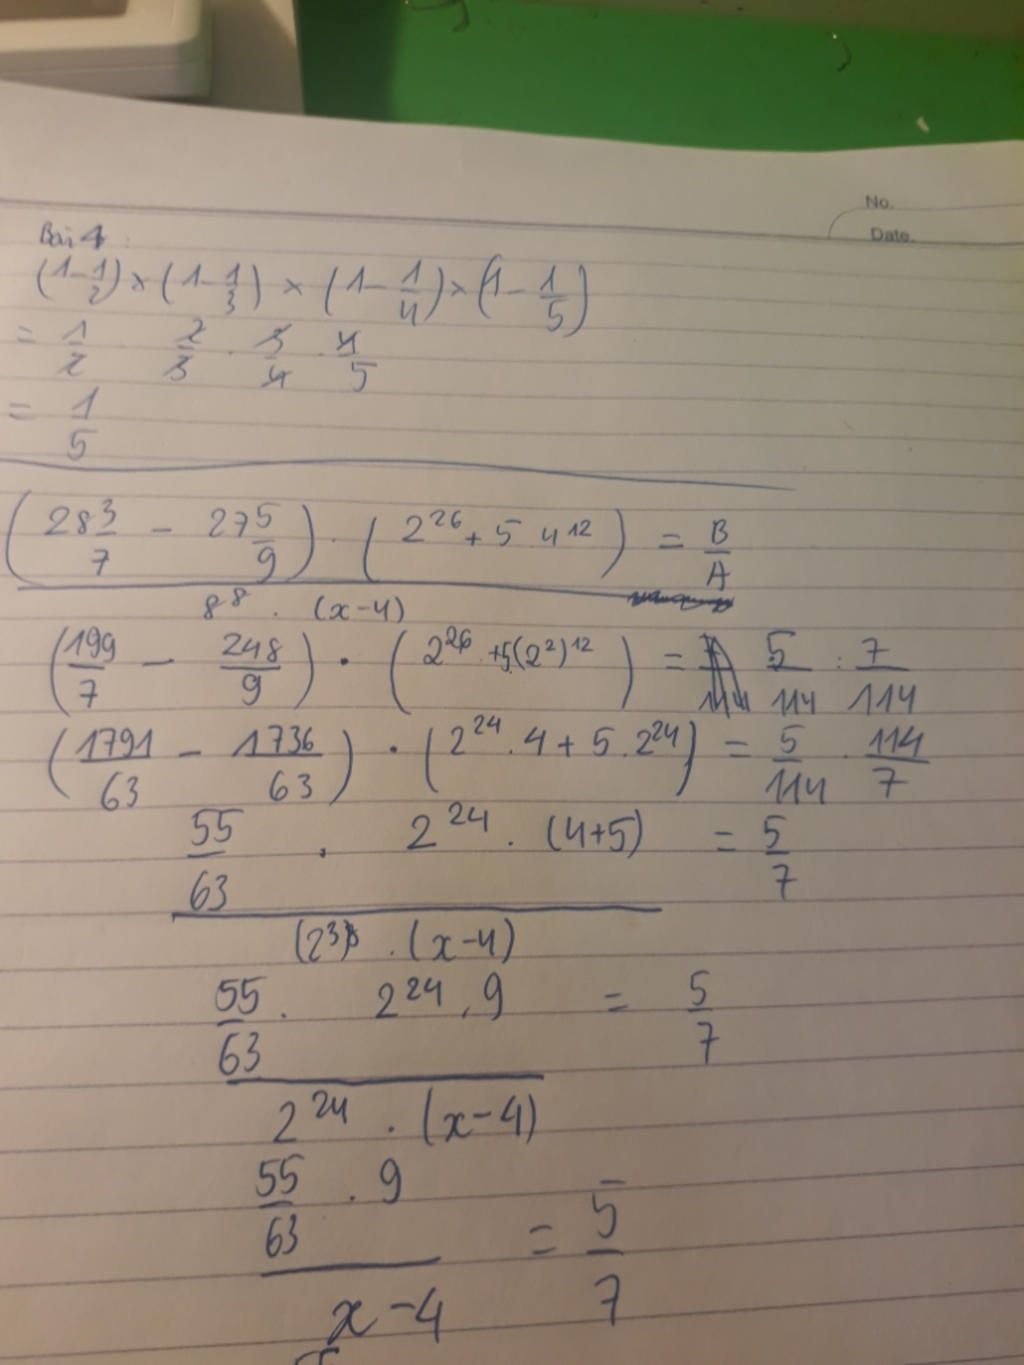 No.
Date.
Bài 4:
(1-1/2)×(1-1/3)×(1-1/4)×(1-1/5)
= 1/2 · 2/3 · 3/4 · 4/5
= 1/5
(28 3/7 - 27 5/9) · (2^26 + 5 4^12) = B/A
8^8 · (x-4)
(199/7 - 248/9) · (2^26 + 5(2^2)^12) = 5/114 : 7/114
(1791/63 - 1736/63) · (2^24 · 4 + 5 . 2^24) = 5/114 · 114/7
55/63 · 2^24 · (4+5) = 5/7
(2^3)^8 · (x-4)
55/63 · 2^24 . 9 = 5/7
2^24 · (x-4)
55/63 . 9 = 5/7
x-4